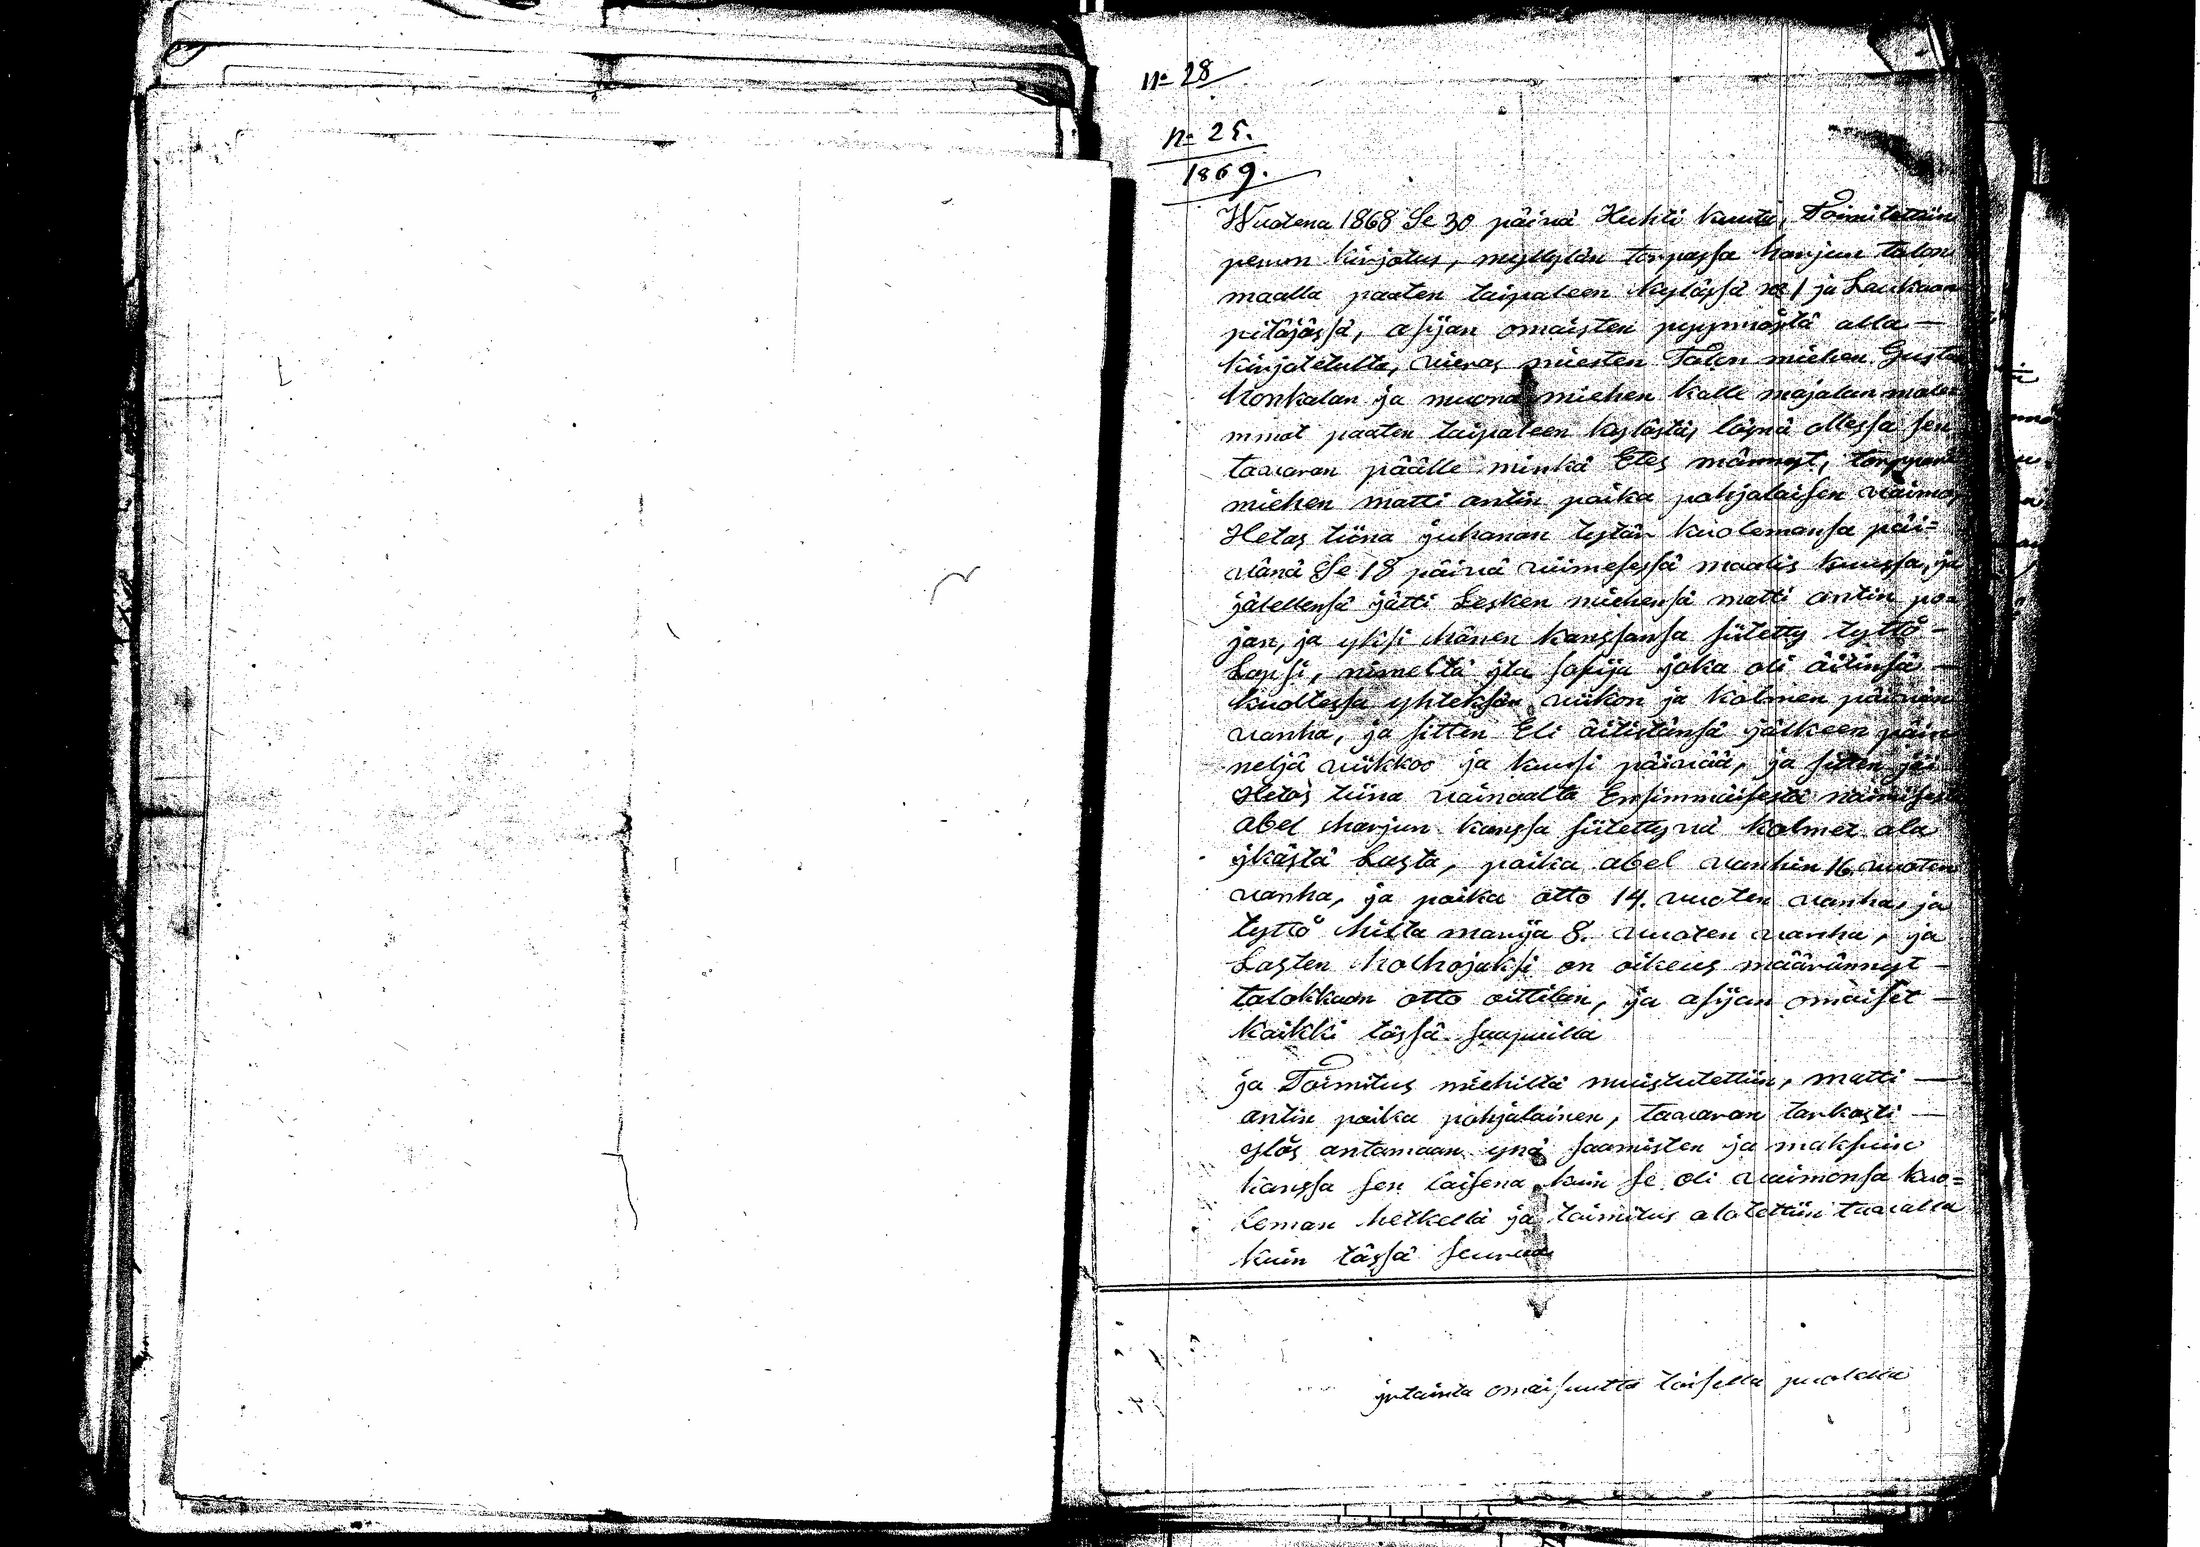 no 28
no 25.
1869.
Wuotena 1868 Se 30 päivä Huhti kuuta, Toimitettiin
perun kirjotus, myllylän torpassa harjun talon
maalla paaten taipaleen kylässä no 1 ja Laukaan
pitäjässä, asijan omaisten pyynnöstä alla —
kirjotetulta, vieras miesten Talon miehen Gusta
honkalan ja muona miehen kalle majalan molen
mmat paaten taipaleen kylästä, läsnä ollessa sen
tavaran päälle minkä Etes männyt, torppari
miehen matti antin poika pohjalaisen vaimo,
Hetas tiina juhanan tytär kuolemansa päi=
vänä Se 18 päivä viimesessä maalis kuussa, ja
jälellensä jätti Lesken miehensä matti antin po=
jan, ja yksi hänen kanssansa siitetty tyttö —
Lapsi, nimeltä ita sofija joka oli äitinsä —
kuollessa yhteksän viikon ja kolmen päivän
vanha, ja sitten Eli äitistänsä jälkeen päin
neljä viikkoo ja kuusi päivää, ja sitten jäi
Hetas tiina vainaalta Ensimmäisestä naimisest
abel harjun kanssa siitettynä kolmet ala
ikästä Lasta, poika abel vanhin 16. vuoten
vanha, ja poika otto 14. vuoten vanha, ja
tyttö hilta marija 8. vuoten vanha, ja
Lasten holhojaksi on oikeus määrännyt —
talokkaan otto oittilan, ja asijan omaiset —
kaikki tässä saapuilla
ja Toimitus miehiltä muistutettiin, matti —
antin poika pohjalainen, tavaran tarkasti —
ylös antamaan ynä saamisten ja maksuin
kanssa sen laisena kuin se oli vaimonsa kuo=
Leman hetkellä ja toimitus alotettiin tavalla
kuin tässä seuraa
irtainta omaisuutta toisella puolella